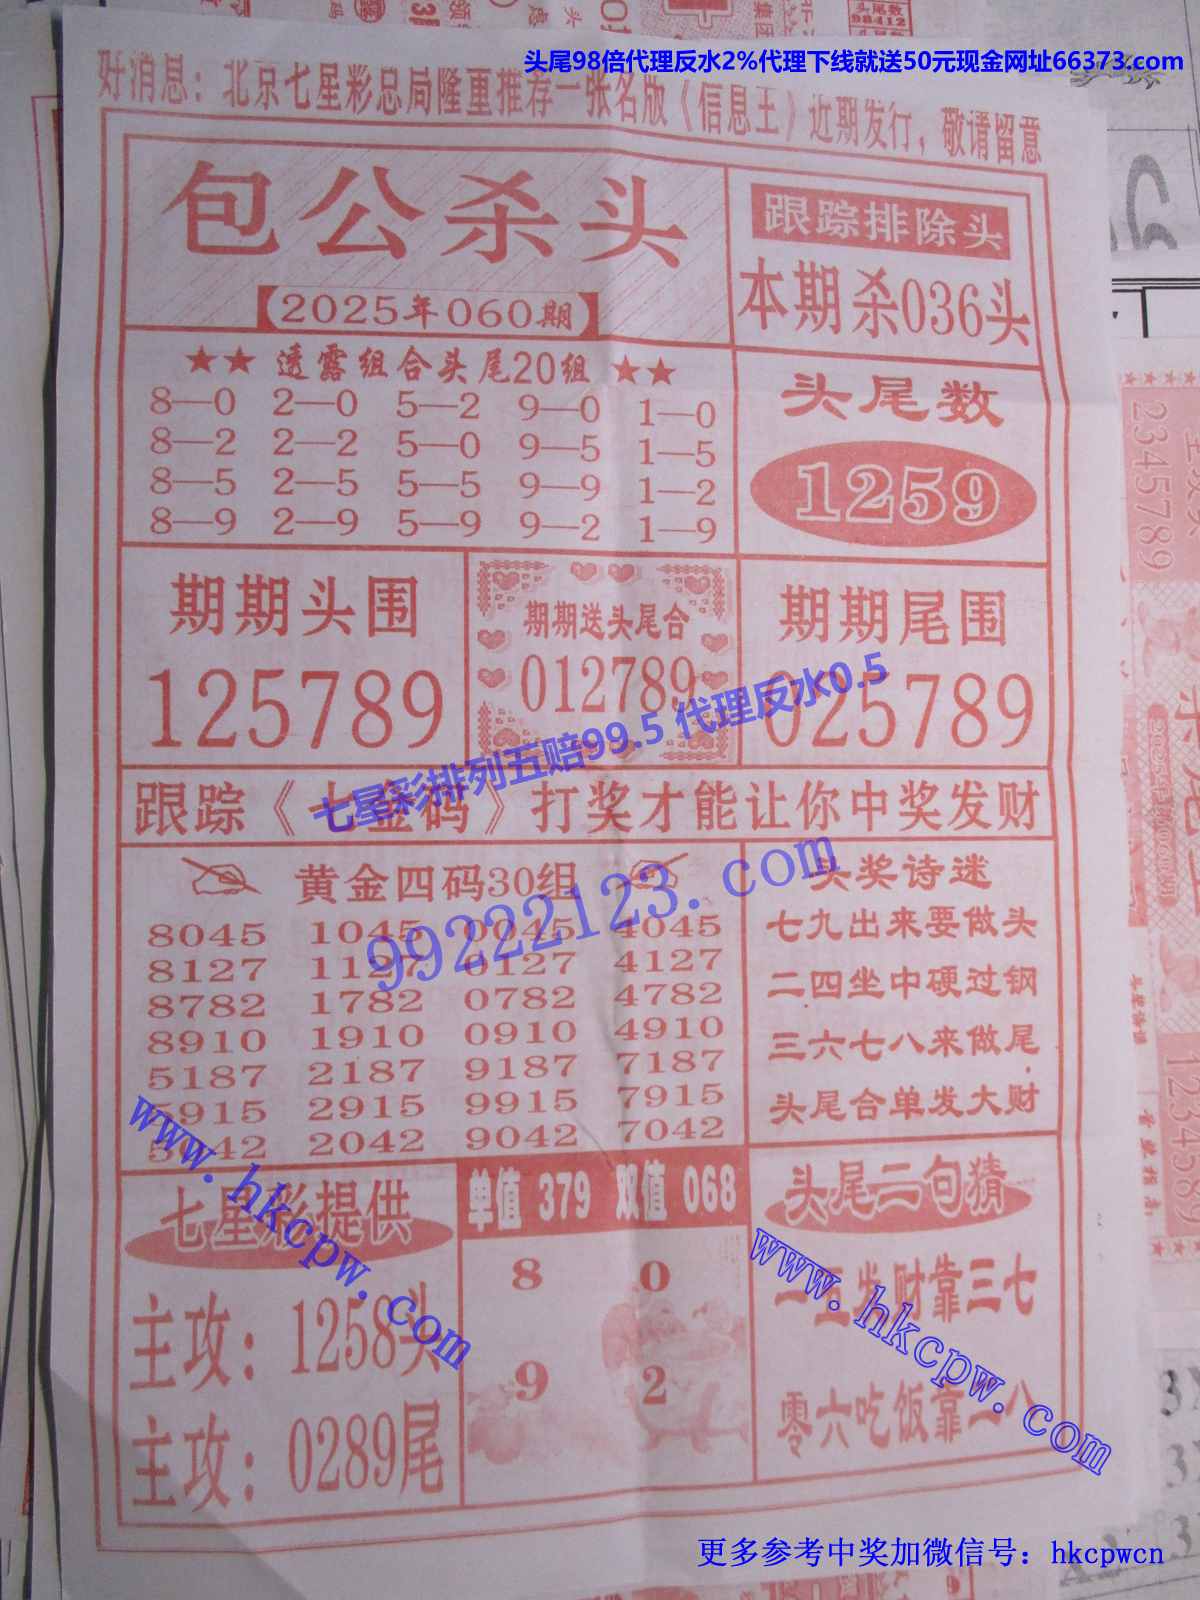 头尾98倍代理反水2%代理下线就送50元现金网址66373.com
好消息：北京七星彩总局隆重推荐一张名版《信息王》近期发行，敬请留意
包公杀头
【2025年060期】
跟踪排除头
本期杀036头
★★ 透露组合头尾20组 ★★
8—0 2—0 5—2 9—0 1—0
8—2 2—2 5—0 9—5 1—5
8—5 2—5 5—5 9—9 1—2
8—9 2—9 5—9 9—2 1—9
头尾数
1259
期期头围
125789
期期送头尾合
012789
期期尾围
025789
七星彩排列五赔99.5 代理反水0.5
跟踪《七金码》打奖才能让你中奖发财
黄金四码30组
8045 1045 0045 4045
8127 1127 0127 4127
8782 1782 0782 4782
8910 1910 0910 4910
5187 2187 9187 7187
5915 2915 9915 7915
5042 2042 9042 7042
99222123.com
头奖诗迷
七九出来要做头
二四坐中硬过钢
三六七八来做尾
头尾合单发大财
七星彩提供
主攻：1258头
主攻：0289尾
单值 379 双值 068
8 0
9 2
头尾二句猜
一五发财靠三七
零六吃饭靠二八
www.hkcpw.com
www.hkcpw.com
更多参考中奖加微信号：hkcpwcn
头尾数
98412
2345789
1234589